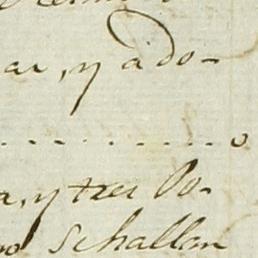 ar, y ado-
- - - - - - - - - - o
a, y tres Po-
no se hallan